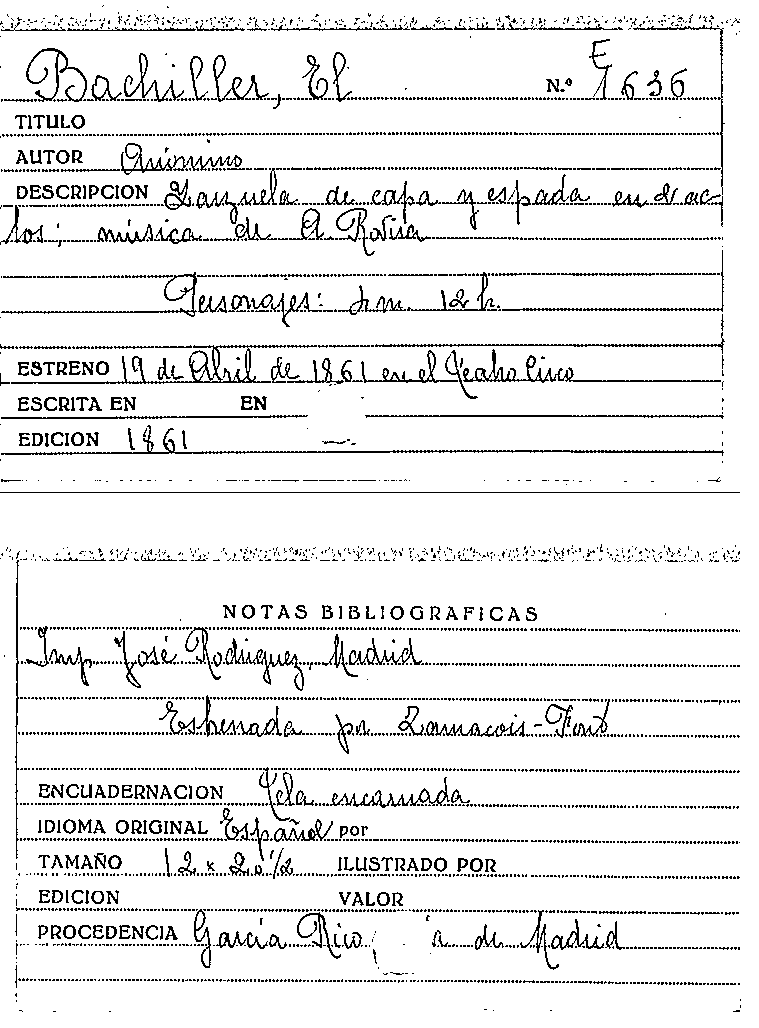 Bachiller, El
E
N.º 1636
TITULO
AUTOR Anónimo
DESCRIPCION Zarzuela de capa y espada en 2 ac-
tos; música de A. Rovira
Personajes: 4 m. 12 h.
ESTRENO 19 de Abril de 1861 en el Teatro Circo
ESCRITA EN EN
EDICION 1861 —.
NOTAS BIBLIOGRAFICAS
Imp. José Rodríguez, Madrid
Estrenada por Zamacois-Font
ENCUADERNACION Tela encarnada
IDIOMA ORIGINAL Español por
TAMAÑO 12 x 20 1/2 ILUSTRADO POR
EDICION VALOR
PROCEDENCIA García Rico, de Madrid